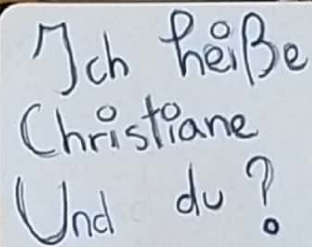 Ich heiße
Christiane
Und du?